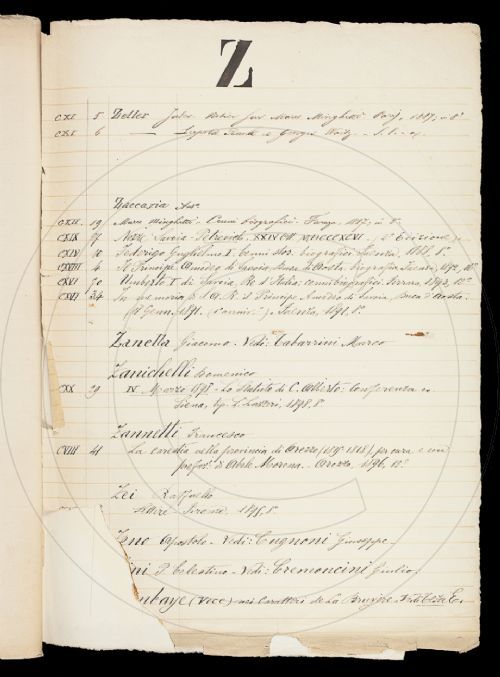 Z
CXI 5 Zeller Jules. Notice sur Marco Minghetti. Paris, 1887, in 8°
CXI 6 — Léopold Ranke et Georges Waitz. - S. l. -
Zaccaria Ant.°
CXII 19 Marco Minghetti - Cenni biografici - Faenza, 1887, in 8°.
CXIX 27 Nozze Savoia-Petrovich. XXIV 8bre MDCCCXCVI. 2ª Edizione
CXIV 10 Federigo Guglielmo I. Cenni stor. biografici. Faenza, 1888, 8°.
4 Il Principe Amedeo di Savoia Duca d'Aosta. Biografia. Faenza, 1892, 16°.
CXVI 70 Umberto I di Savoia, Re d'Italia: cenni biografici. Ferrara, 1893, 12°
CXVI 34 In memoria di S. A. R. il Principe Amedeo di Savoia, Duca d'Aosta.
18 Genn. 1891. Faenza, 1891. 8°
Zanella Giacomo. Vedi: Tabarrini Marco
Zanichelli Domenico
CXX 29 IV Marzo 1898 - Lo Statuto di C. Alberto: Conferenza -
Siena, tip. L. Lazzeri, 1898, 8°
Zannetti Francesco
CXVIII 41 La carestia nella provincia di Arezzo per cura e con
prefaz. di Abele Morena. - Arezzo, 1896, 12°.
Zei Raffaello
Firenze, 1895, 8°
Zeno Apostolo - Vedi: Cugnoni Giuseppe -
ini P. Celestino - Vedi: Cremoncini Giulio.
mbaye (voce) nei Caratteri de La Bruyère. Vedi: Elia E.